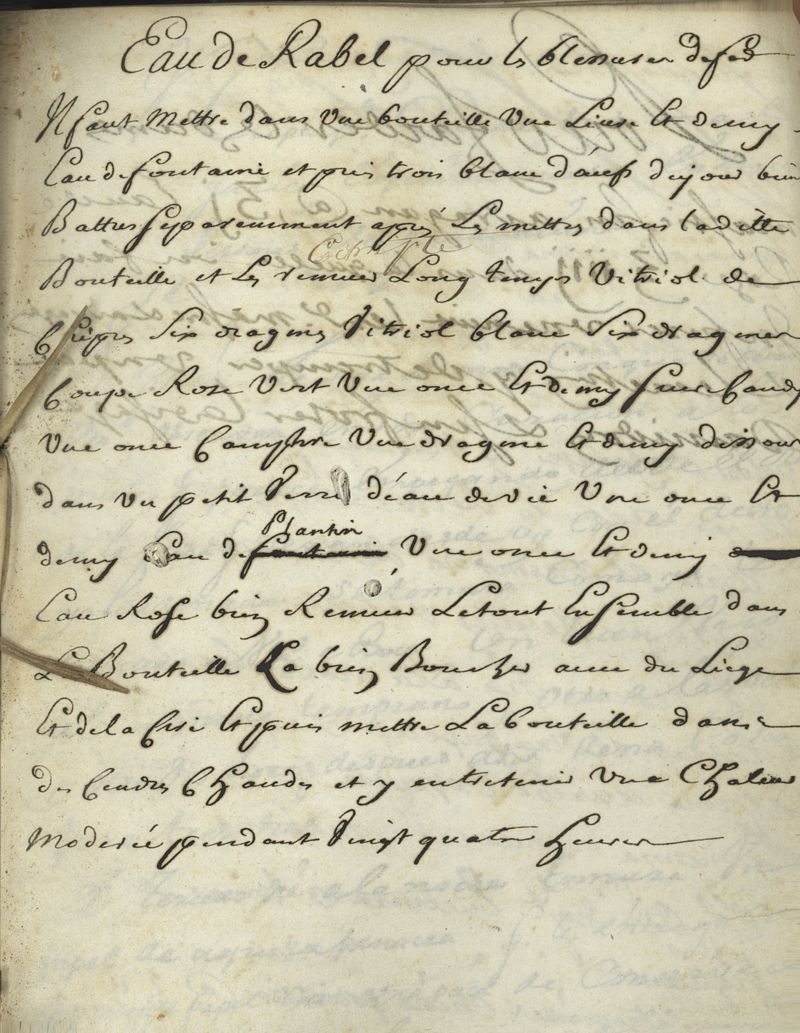 Eau de Rabel pour les blessures de feu
Il faut mettre dans une bouteille une Liure Et demy
Eau de fontaine et puis trois blanc d'œufs du jour bien
Battres separemment aprés Les mettres dans ladte
Bouteille et Les remuer Long temps Vitriol de
Chipre Six dragmes Vitriol blanc Six dragmes
Coupe Rose Vert Une once Et demy sucre Candy
Une once Camphre Une dragme Et demy dissout
dans un petit Verre déau de vie Une once Et
demy Eau de Plantin Une once Et demi
Eau Rose bien Remuer Le tout Ensemble dans
La Bouteille La bien Boucher auec du Liege
Et de la Cire Et puis mettre La bouteille dans
des Cendres CHaudes et y entretenir une CHaleur
Moderée pendant Vingt quatre Heures